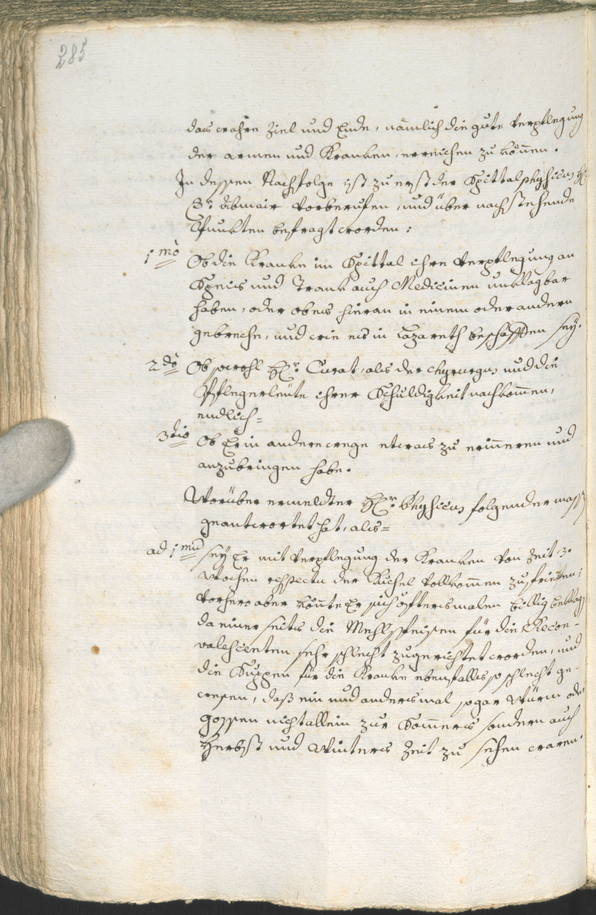 285
das wahre Ziel und Ende, nämlich die gute Verpflegung
der armen und Kranken, erreichen zu können.
In dessen Nachfolge ist zu erst der Spittalphysicus H:
vorberufen, und über nachstehende
Punkten befragt worden:
1mo Ob die Kranke im Spittal ihre Verpflegung an
Speis und Trank auch Medicinen unklagbar
haben, oder obs hieran in einem oder andern
gebreche, und wie es in Lazareth beschaffen sey.
2do Ob sowohl Hr. Curat, als der Chyrurgus und die
Pflegerleüte ihrer Schuldigkeit nachkommen,
endlich=
3tio Ob Er in anderewege etwas zu erinneren und
anzubringen habe.
Worüber ermeldter Hr. Physicus folgender mass
geantwortet hat, als=
ad 1mum sey Er mit Verpflegung der Kranken von Zeit 3.
Wochen respectu der Kuchel vollkommen zufrieden,
vorhero aber könte Er sich öftersmalen billig beklag
da einer seits die Mehlspeisen für die Recon-
valescenten sehr schlecht zugerichtet worden, und
die Suppen für die Kranke ebenfalls so schlecht ge-
wesen, daß ein und andersmal sogar Würm oder
nicht allein zur Sommers sondern auch
Herbst und Winters Zeit zu sehen waren.